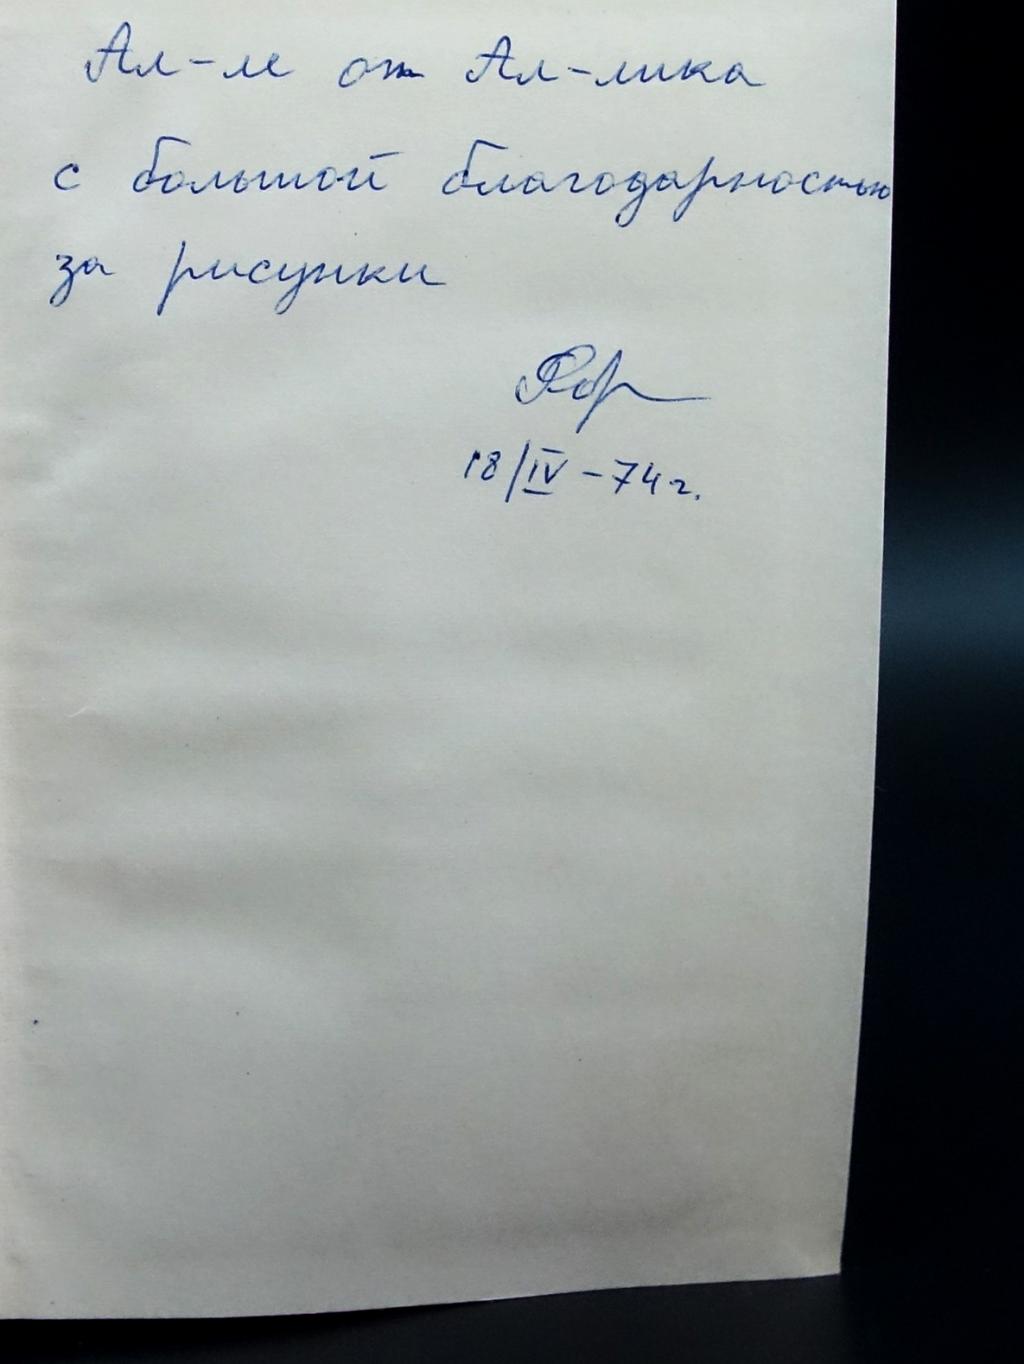 Ал-ле от Ал-лика
с большой благодарностью
за рисунки
18/IV-74г.